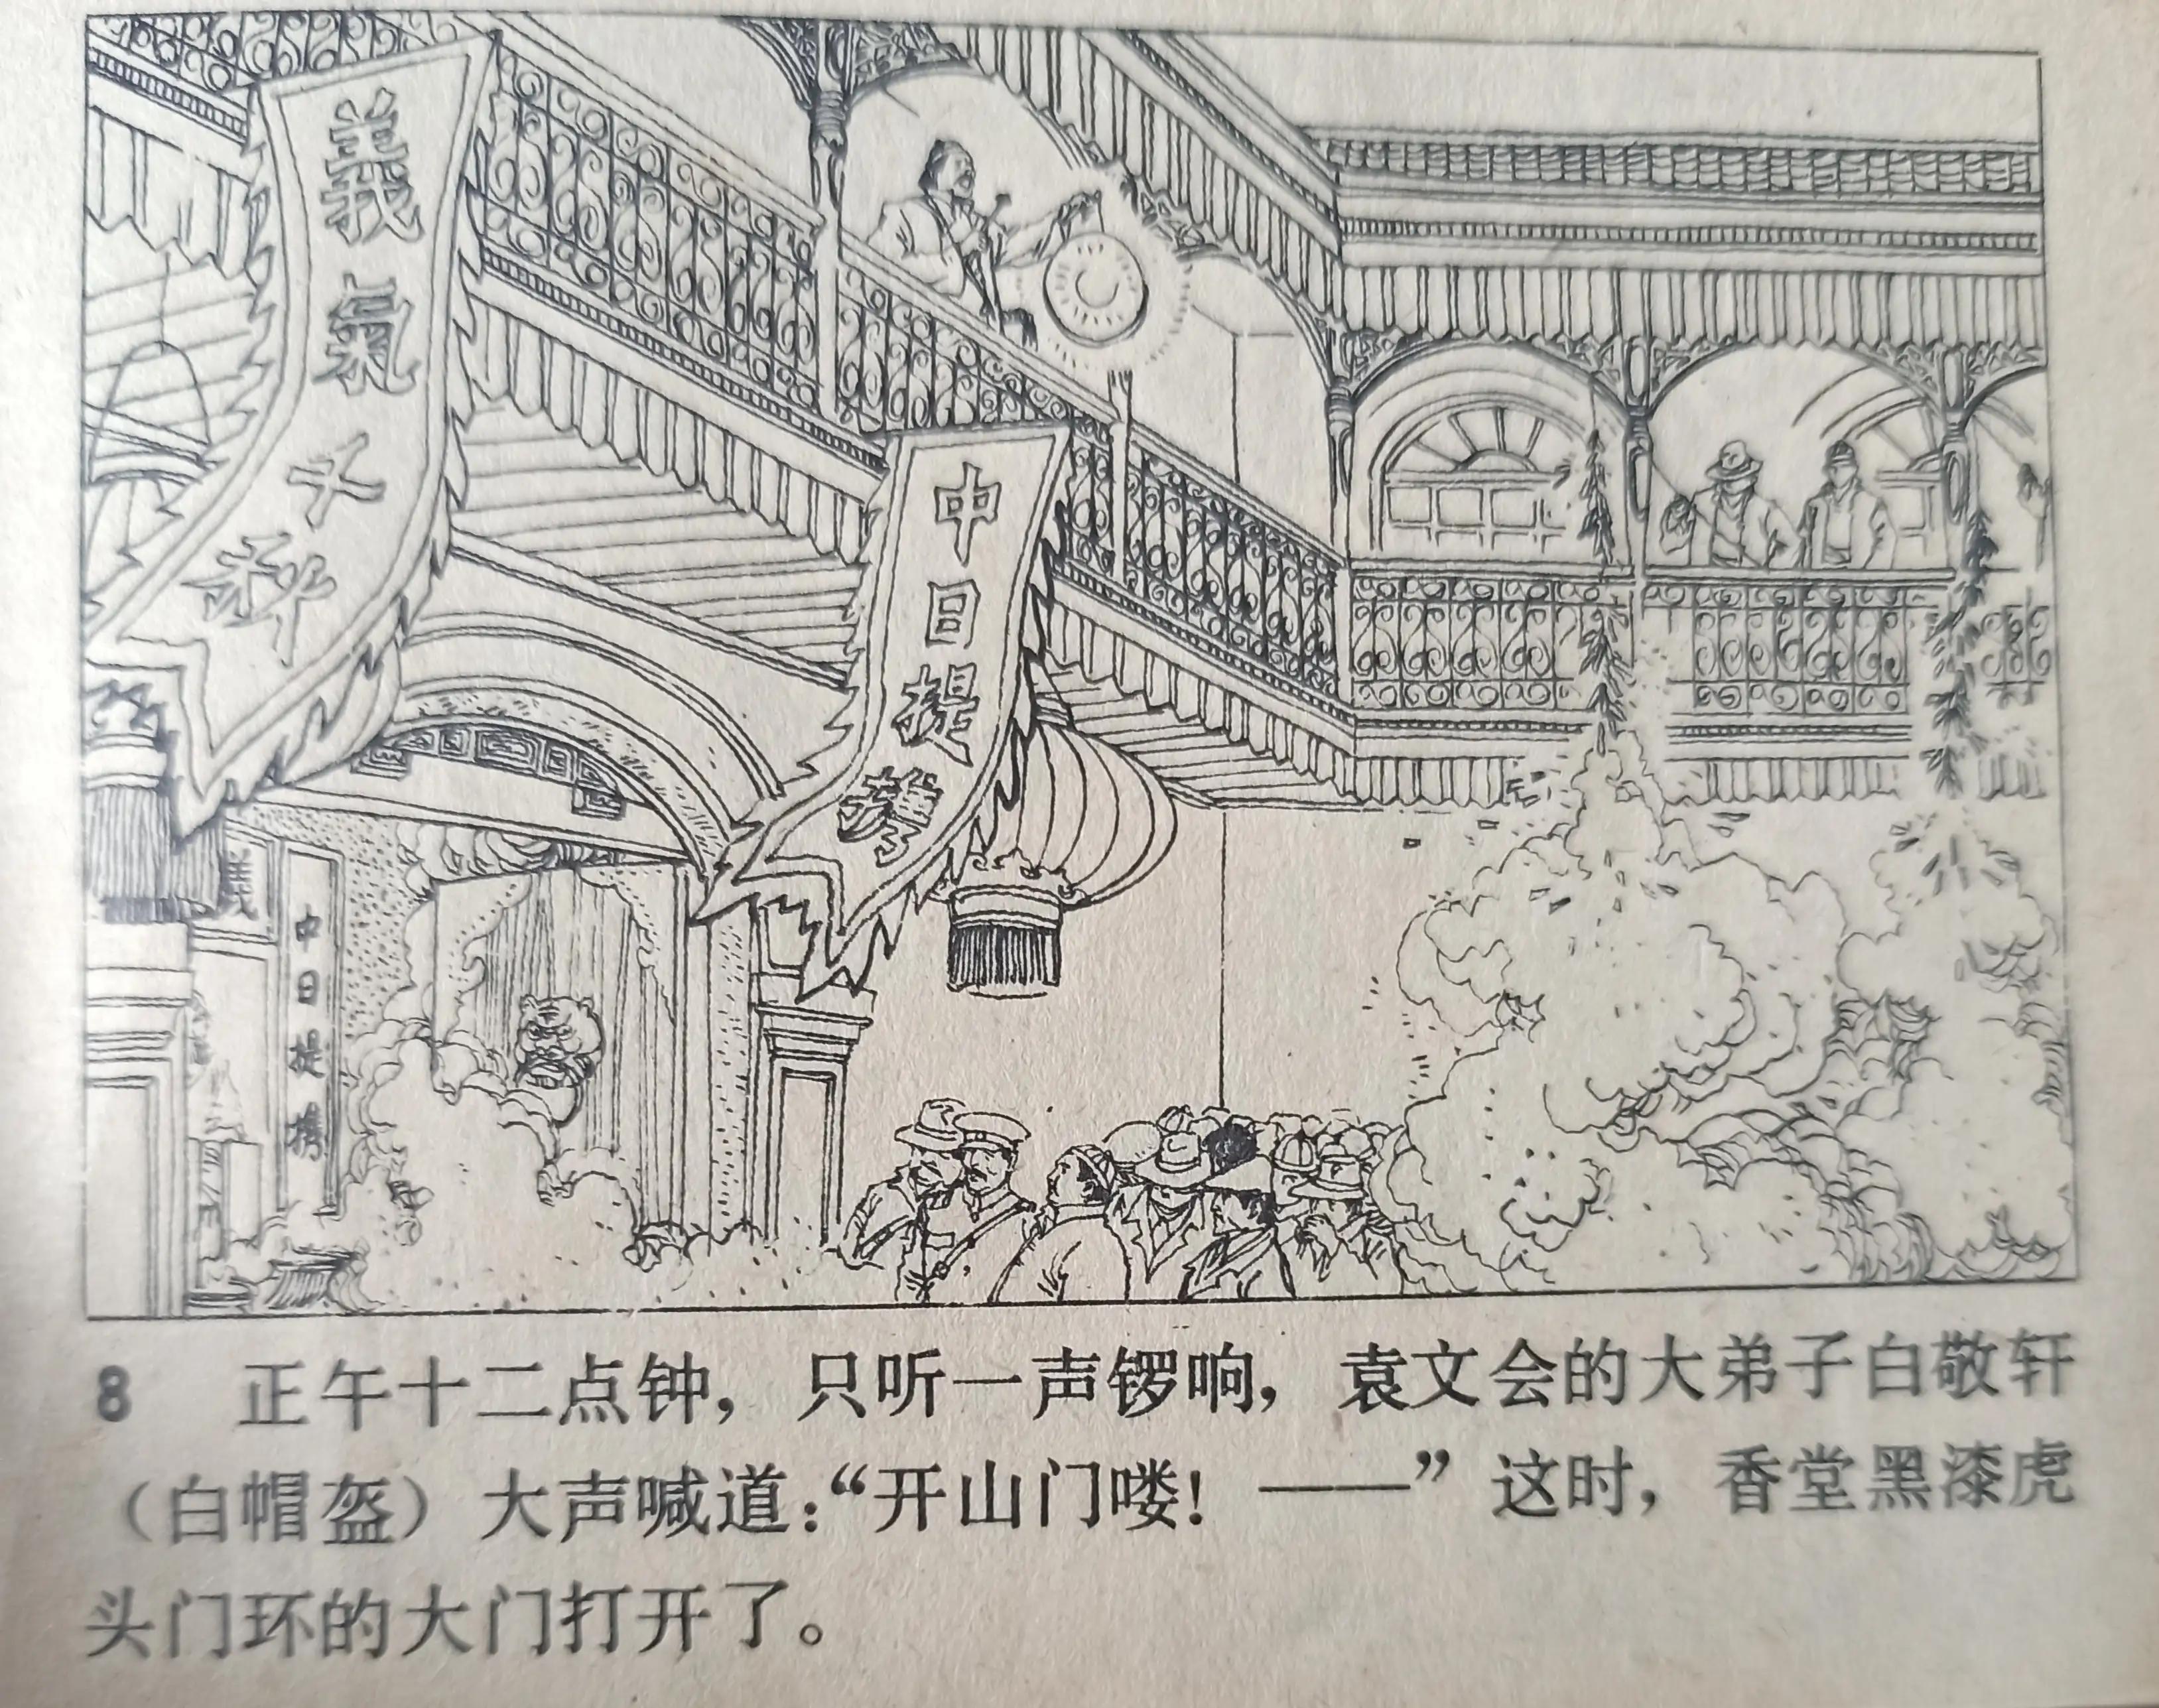 義氣千秋
中日提攜
義
中日提携
8 正午十二点钟，只听一声锣响，袁文会的大弟子白敬轩
（白帽盔）大声喊道：“开山门喽！——”这时，香堂黑漆虎
头门环的大门打开了。